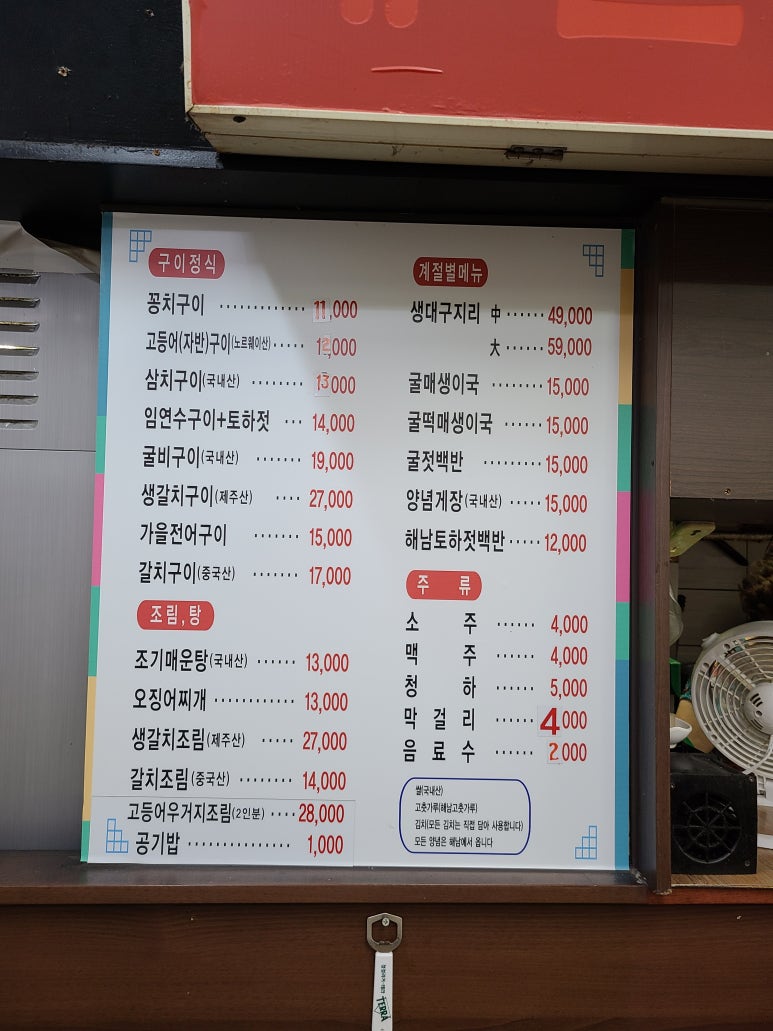 구이정식
꽁치구이 ············ 11,000
고등어(자반)구이(노르웨이산)····· 12,000
삼치구이(국내산) ········ 13000
임연수구이+토하젓 ··· 14,000
굴비구이(국내산) ······· 19,000
생갈치구이(제주산) ···· 27,000
가을전어구이 ······· 15,000
갈치구이(중국산) ······· 17,000
조림,탕
조기매운탕(국내산) ······ 13,000
오징어찌개 ············ 13,000
생갈치조림(제주산) ····· 27,000
갈치조림(중국산) ········ 14,000
고등어우거지조림(2인분) ···· 28,000
공기밥 ··············· 1,000
계절별메뉴
생대구지리 中 ······ 49,000
大 ······ 59,000
굴매생이국 ········ 15,000
굴떡매생이국 ······ 15,000
굴젓백반 ········· 15,000
양념게장(국내산) ····· 15,000
해남토하젓백반 ····· 12,000
주 류
소 주 ······ 4,000
맥 주 ······ 4,000
청 하 ······ 5,000
막 걸 리 ······ 4000
음 료 수 ······ 2000
쌀(국내산)
고춧가루(해남고춧가루)
김치(모든 김치는 직접 담아 사용합니다)
모든 양념은 해남에서 옵니다
TERRA